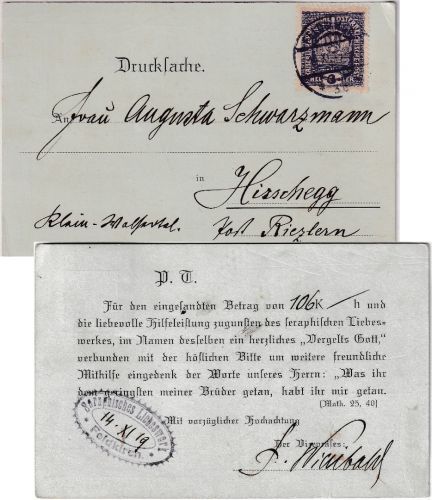 Drucksache.
3
An Frau Augusta Schwarzmann
in
Hirschegg
Klein-Walsertal. Post Riezlern
P. T.
Für den eingesandten Betrag von 106K — h und
die liebevolle Hilfeleistung zugunsten des seraphischen Liebes-
werkes, im Namen desselben ein herzliches „Vergelts Gott,"
verbunden mit der höflichen Bitte um weitere freundliche
Mithilfe eingedenk der Worte unseres Herrn: „Was ihr
dem geringsten meiner Brüder getan, habt ihr mir getan.
(Math. 25, 40)
Mit vorzüglicher Hochachtung
Der Vizepräses:
Seraphisches Liebeswerk
14. XI 19
Feldkirch.